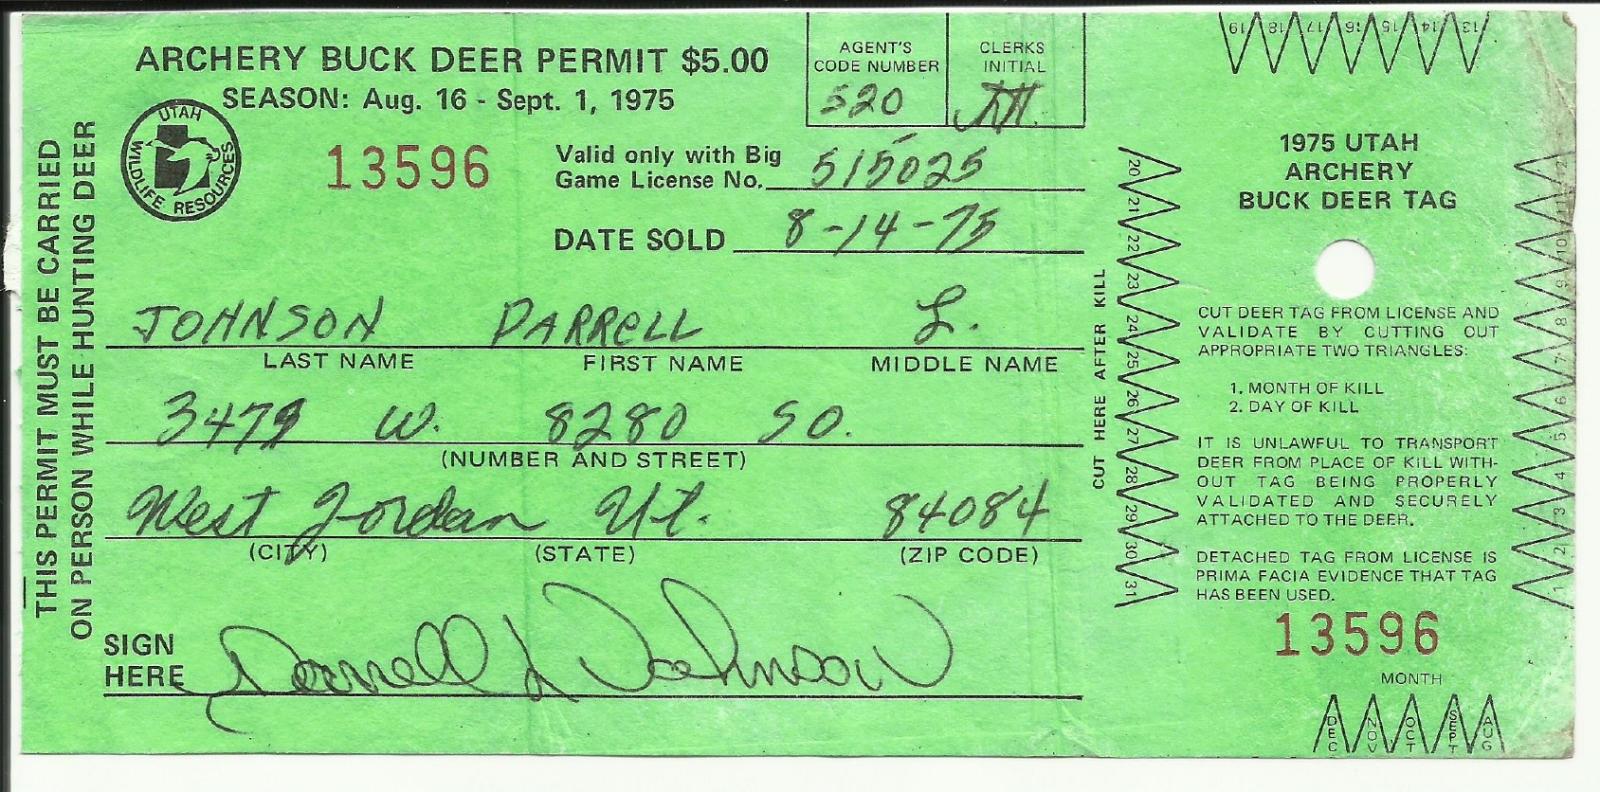 ARCHERY BUCK DEER PERMIT $5.00
SEASON: Aug. 16 - Sept. 1, 1975
AGENT'S CODE NUMBER
520
CLERKS INITIAL
UTAH WILDLIFE RESOURCES
13596
Valid only with Big
Game License No. 515025
DATE SOLD 8-14-75
THIS PERMIT MUST BE CARRIED
ON PERSON WHILE HUNTING DEER
JOHNSON DARRELL L.
LAST NAME FIRST NAME MIDDLE NAME
3479 W. 8280 SO.
(NUMBER AND STREET)
West Jordan Ut. 84084
(CITY) (STATE) (ZIP CODE)
SIGN
HERE Darrell L Johnson
CUT HERE AFTER KILL
19 18 17 16 15 14 13
20 21 22 23 24 25 26 27 28 29 30 31
1975 UTAH
ARCHERY
BUCK DEER TAG
CUT DEER TAG FROM LICENSE AND
VALIDATE BY CUTTING OUT
APPROPRIATE TWO TRIANGLES:
1. MONTH OF KILL
2. DAY OF KILL
IT IS UNLAWFUL TO TRANSPORT
DEER FROM PLACE OF KILL WITH-
OUT TAG BEING PROPERLY
VALIDATED AND SECURELY
ATTACHED TO THE DEER.
DETACHED TAG FROM LICENSE IS
PRIMA FACIA EVIDENCE THAT TAG
HAS BEEN USED.
13596
12 11 10 9 8 7 6 5 4 3 2 1
MONTH
DEC NOV OCT SEPT AUG